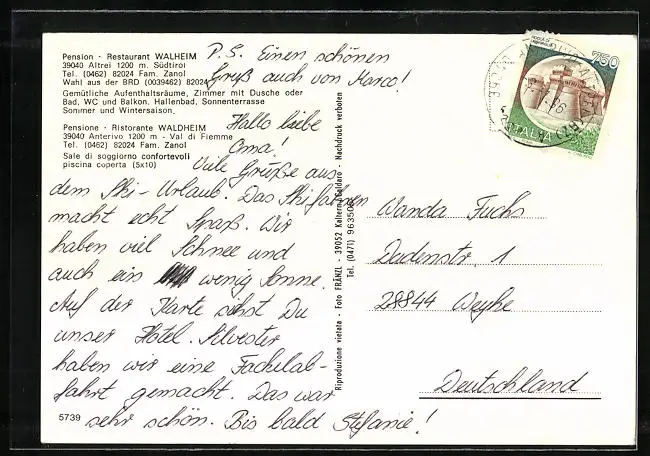 Pension · Restaurant WALHEIM
39040 Altrei 1200 m. Südtirol
Tel. (0462) 82024 Fam. Zanol
Wahl aus der BRD (0039462) 82024
Gemütliche Aufenthaltsräume, Zimmer mit Dusche oder
Bad, WC und Balkon. Hallenbad, Sonnenterrasse
Sommer und Wintersaison.
Pensione · Ristorante WALDHEIM
39040 Anterivo 1200 m - Val di Fiemme
Tel. (0462) 82024 Fam. Zanol
Sale di soggiorno confortevoli
piscina coperta (5x10)
P.S. Einen schönen
Gruß auch von Marco!
Hallo liebe
Oma!
Viele Grüße aus
dem Ski-Urlaub. Das Skifahren
macht echt Spaß. Wir
haben viel Schnee und
auch ein wenig Sonne.
Auf der Karte siehst Du
unser Hotel. Silvester
haben wir eine Fackelab-
fahrt gemacht. Das war
sehr schön. Bis bald Stefanie!
5739
Riproduzione vietata - Foto FRÄNZL - 39052 Kaltern/Caldaro - Nachdruck verboten
Tel. (0471) 963506
750
ITALIA
Wanda Fuchs
Dudenstr. 1
28844 Weyhe
Deutschland